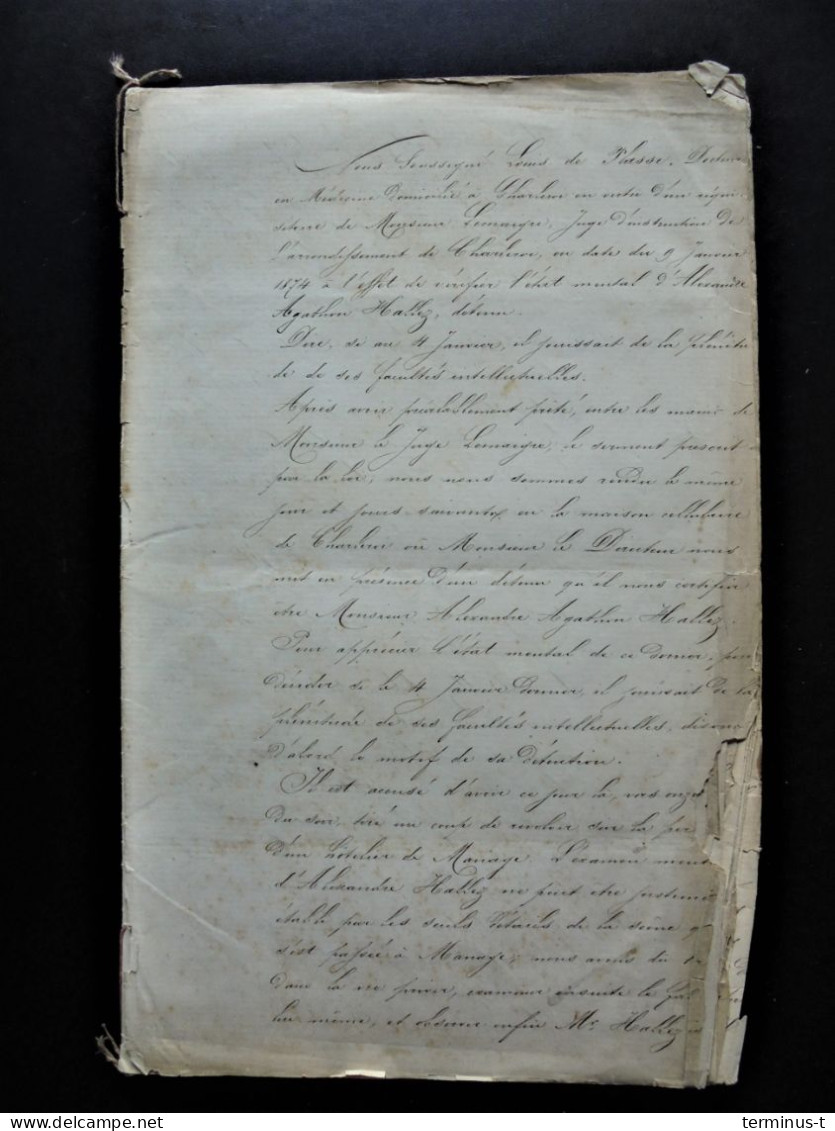 Nous Soussigné Louis de Passe, Docteur
en Médecine Domicilié à Charleroi en vertu d'un réqui-
sitoire de Monsieur Lemaigre, Juge d'instruction de
l'arrondissement de Charleroi, en date du 9 Janvier
1874 à l'effet de vérifier l'état mental d'Alexandre
Agathon Hallez, détenu.
Dire, si au 4 Janvier, il jouissait de la plénitu-
de de ses facultés intellectuelles.
Après avoir préalablement prêté, entre les mains de
Monsieur le Juge Lemaigre, le serment prescrit
par la loi, nous nous sommes rendu le même
jour et jours suivants en la maison cellulaire
de Charleroi où Monsieur le Directeur nous
mit en présence d'un détenu qu'il nous certifia
être Monsieur Alexandre Agathon Hallez.
Pour apprécier l'état mental de ce dernier, pour
décider si le 4 Janvier dernier, il jouissait de la
plénitude de ses facultés intellectuelles, disons
d'abord le motif de sa détention.
Il est accusé d'avoir ce jour là, vers onze
du soir, tiré un coup de revolver sur la per
d'un hôtelier de Manage. L'examen ment
d'Alexandre Hallez ne peut être
établi par les seuls détails de la scène q
s'est passée à Manage, nous avons dû
dans la vie privée, examiner ensuite le fai
lui même, et observer enfin Mr Hallez
terminus-t